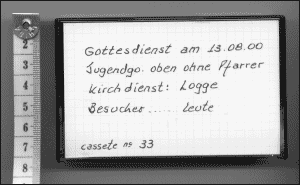 Gottesdienst am 13.08.00
Jugendgo. oben ohne Pfarrer
Kirchdienst: Logge
Besucher ...... Leute
cassete nº 33
2
3
4
5
6
7
8